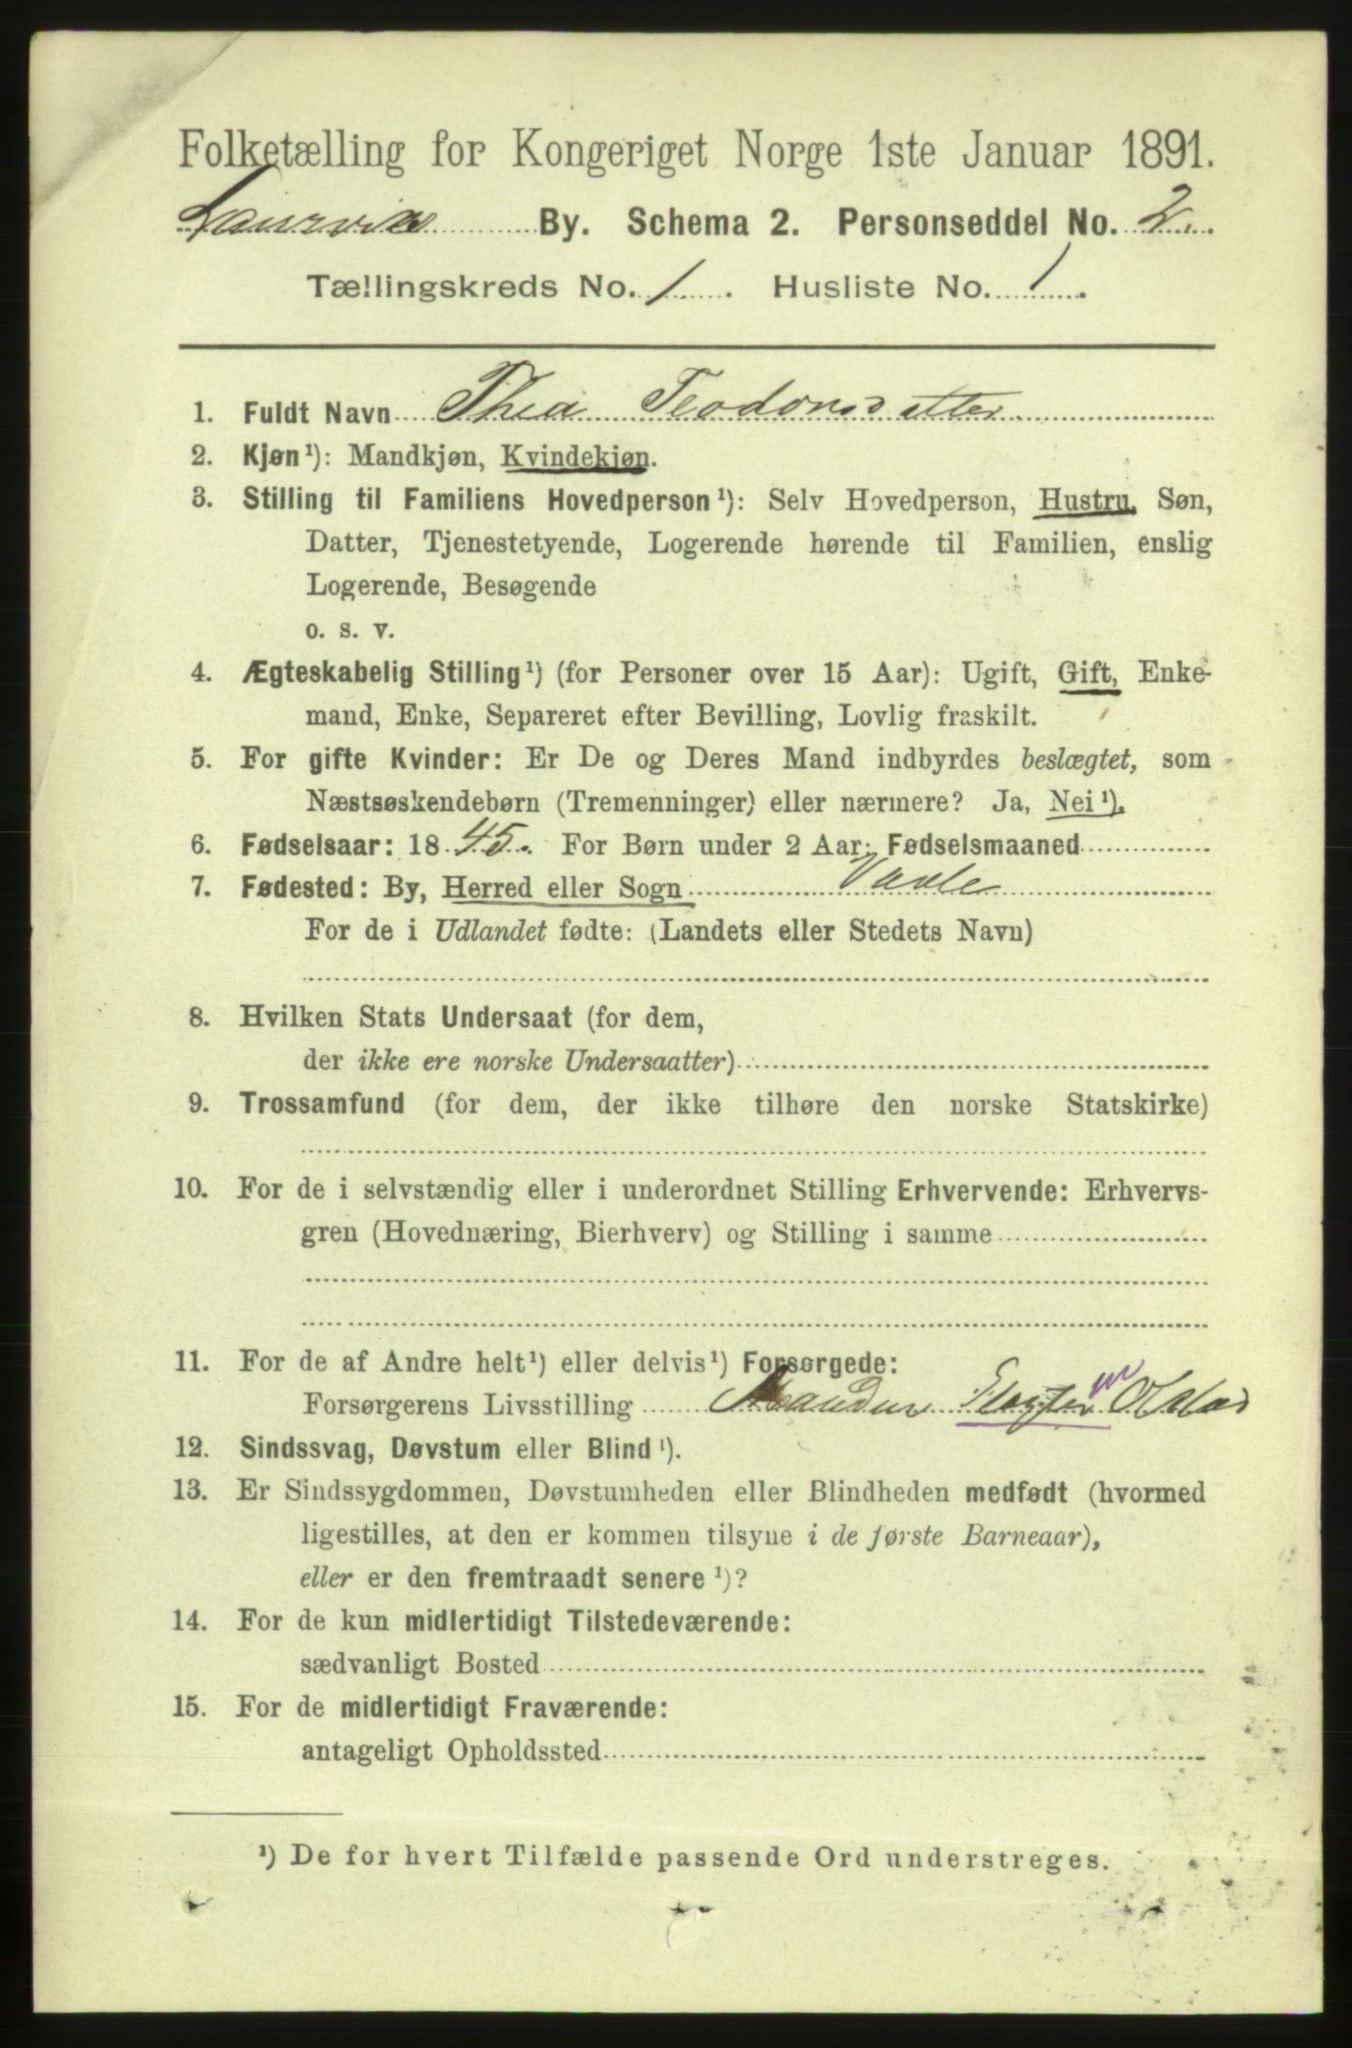 Folketælling for Kongeriget Norge 1ste Januar 1891.
Laurvik By. Schema 2. Personseddel No. 2
Tællingskreds No. 1. Husliste No. 1
1. Fuldt Navn Thea Teodorsdatter
2. Kjøn ¹): Mandkjøn, Kvindekjøn.
3. Stilling til Familiens Hovedperson ¹): Selv Hovedperson, Hustru, Søn,
Datter, Tjenestetyende, Logerende hørende til Familien, enslig
Logerende, Besøgende
o. s. v.
4. Ægteskabelig Stilling ¹) (for Personer over 15 Aar): Ugift, Gift, Enke-
mand, Enke, Separeret efter Bevilling, Lovlig fraskilt.
5. For gifte Kvinder: Er De og Deres Mand indbyrdes beslægtet, som
Næstsøskendebørn (Tremenninger) eller nærmere? Ja, Nei ¹).
6. Fødselsaar: 1845. For Børn under 2 Aar: Fødselsmaaned
7. Fødested: By, Herred eller Sogn Vaale
For de i Udlandet fødte: (Landets eller Stedets Navn)
8. Hvilken Stats Undersaat (for dem,
der ikke ere norske Undersaatter)
9. Trossamfund (for dem, der ikke tilhøre den norske Statskirke)
10. For de i selvstændig eller i underordnet Stilling Erhvervende: Erhvervs-
gren (Hovednæring, Bierhverv) og Stilling i samme
11. For de af Andre helt ¹) eller delvis ¹) Forsørgede:
Forsørgerens Livsstilling Manden Slagter
12. Sindssvag, Døvstum eller Blind ¹).
13. Er Sindssygdommen, Døvstumheden eller Blindheden medfødt (hvormed
ligestilles, at den er kommen tilsyne i de første Barneaar),
eller er den fremtraadt senere ¹)?
14. For de kun midlertidigt Tilstedeværende:
sædvanligt Bosted
15. For de midlertidigt Fraværende:
antageligt Opholdssted
¹) De for hvert Tilfælde passende Ord understreges.